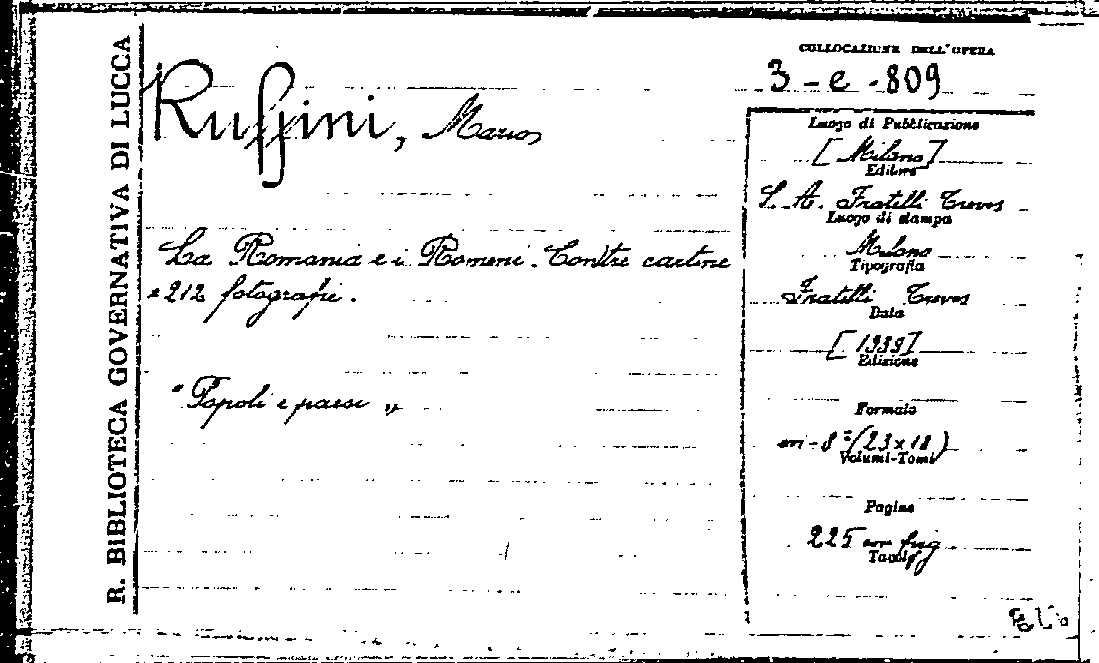 R. BIBLIOTECA GOVERNATIVA DI LUCCA
Ruffini, Mario
La Romania e i Romeni. Con tre cartine
e 212 fotografie.
"Popoli e paesi"
COLLOCAZIONE DELL'OPERA
3-e-809
Luogo di Pubblicazione
[Milano]
Editore
S. A. Fratelli Treves
Luogo di stampa
Milano
Tipografia
Fratelli Treves
Data
[1939]
Edizione
Formato
in-8° (23x18)
Volumi-Tomi
Pagine
225 con fig.
Tavole